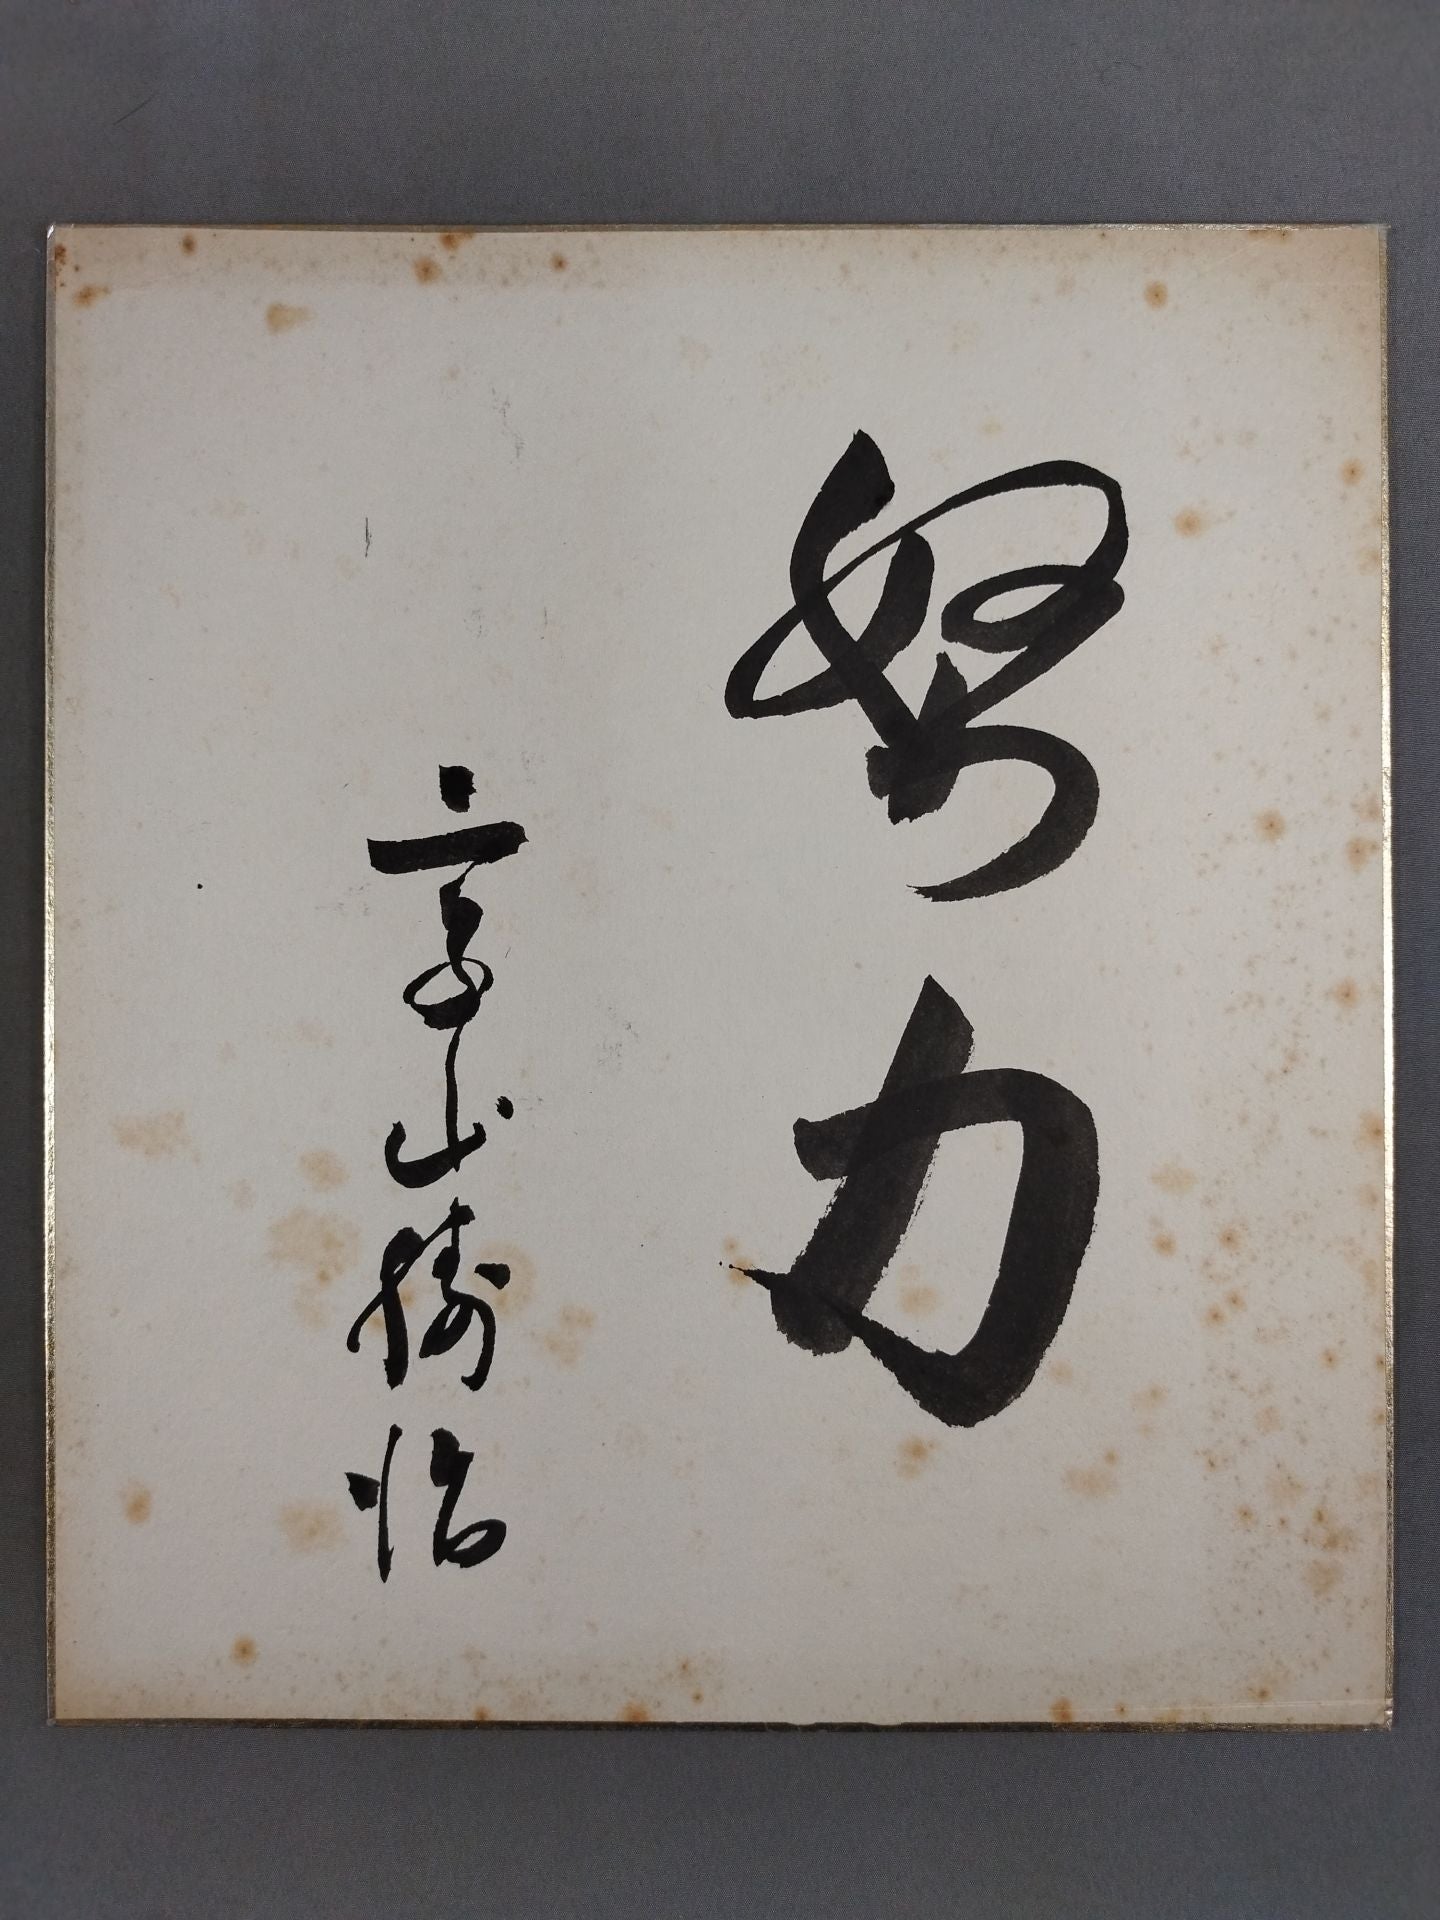 努力
高山勝治